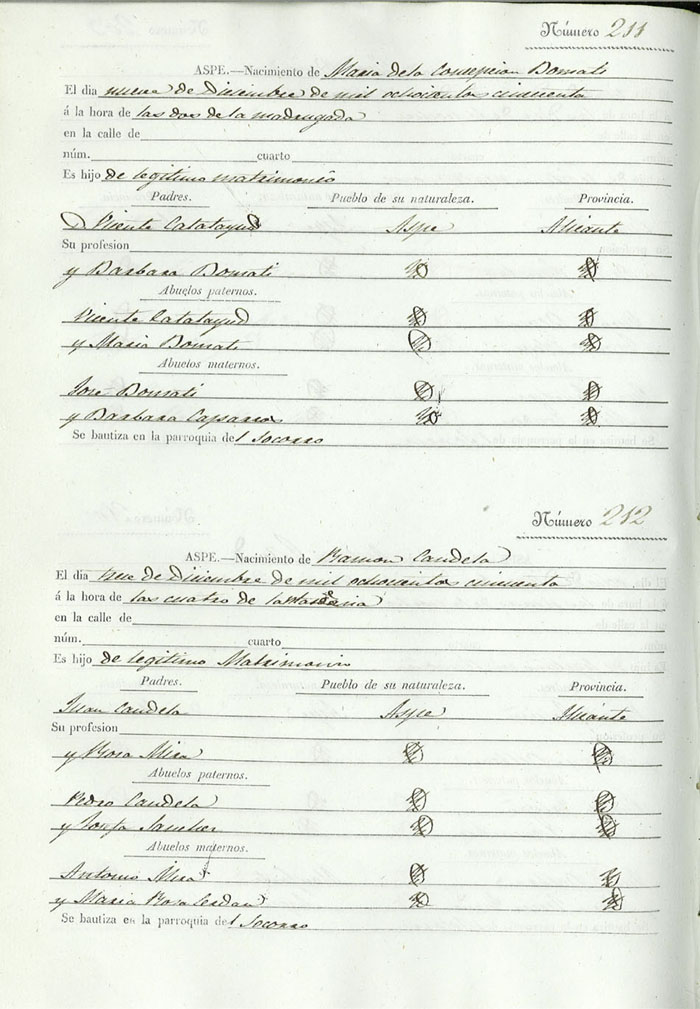 Número 211
ASPE.—Nacimiento de Maria dela Consepcion Bonsati
El dia nueve de Diciembre de mil ochocientos cincuenta
á la hora de las dos de la madrugada
en la calle de
núm. cuarto
Es hijo de legitimo matrimonio
Padres. Pueblo de su naturaleza. Provincia.
D Vicente Catatayud Aspe Alicante
Su profesion
y Barbara Bonsati
Abuelos paternos.
Vicente Catatayud
y Maria Bonsati
Abuelos maternos.
Jose Bonsati
y Barbara
Se bautiza en la parroquia del Socorro
Número 212
ASPE.—Nacimiento de Ramon Candela
El dia de Diciembre de mil ochocientos cincuenta
á la hora de las cuatro de la
en la calle de
núm. cuarto
Es hijo de legitimo Matrimonio
Padres. Pueblo de su naturaleza. Provincia.
Juan Candela Aspe Alicante
Su profesion
y Rosa Mira
Abuelos paternos.
Pedro Candela
y Josefa Sanchez
Abuelos maternos.
Antonio Mira
y Maria Rosa Cerdan
Se bautiza en la parroquia del Socorro